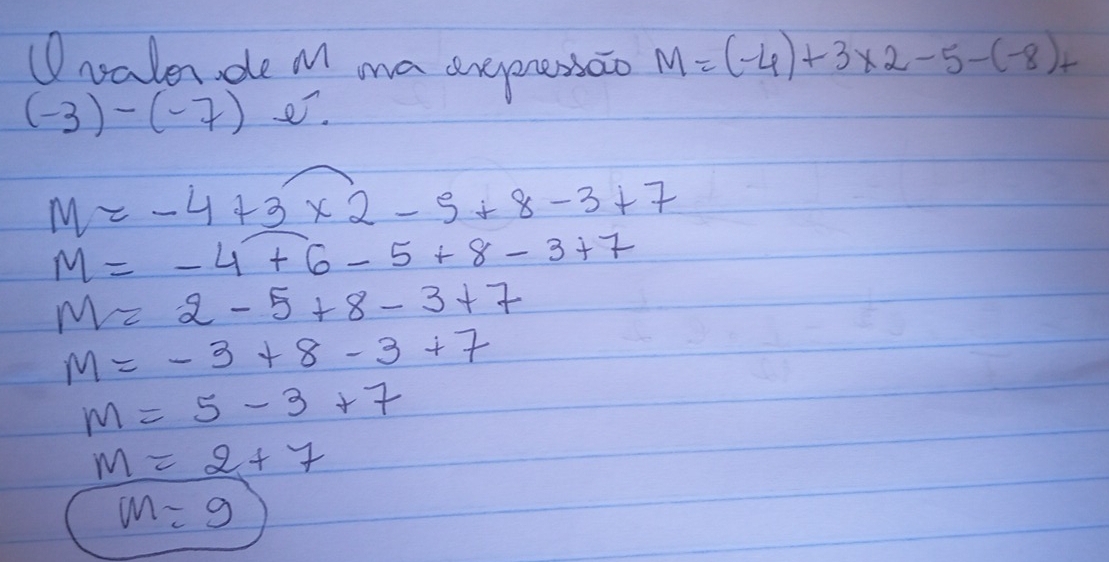 O valor de M na expressão M = (-4) + 3 x 2 - 5 - (-8) +
(-3) - (-7) é.
M = -4 + 3 x 2 - 5 + 8 - 3 + 7
M = -4 + 6 - 5 + 8 - 3 + 7
M = 2 - 5 + 8 - 3 + 7
M = -3 + 8 - 3 + 7
M = 5 - 3 + 7
M = 2 + 7
M = 9